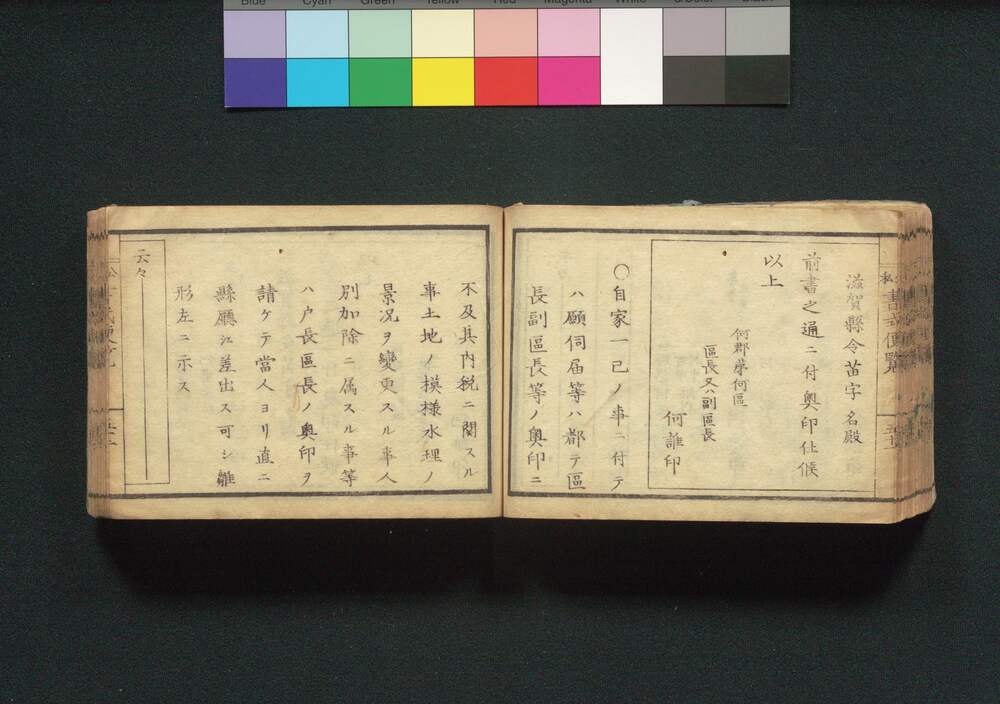 Blue Cyan Green Yellow Red Magenta White 3/Color Black
滋賀縣令苗字名殿
前書之通ニ付奧印仕候
以上
何郡第何區
區長又ハ副區長
何誰印
〇自家一己ノ事ニ付テ
ハ願伺届等ハ都テ區
長副區長等ノ奧印ニ
不及其内税ニ関スル
事土地ノ模様水理ノ
景況ヲ變更スル事人
別加除ニ属スル事等
ハ戸長區長ノ奥印ヲ
請ケテ當人ヨリ直ニ
縣廳江差出ス可シ雛
形左ニ示ス
云々